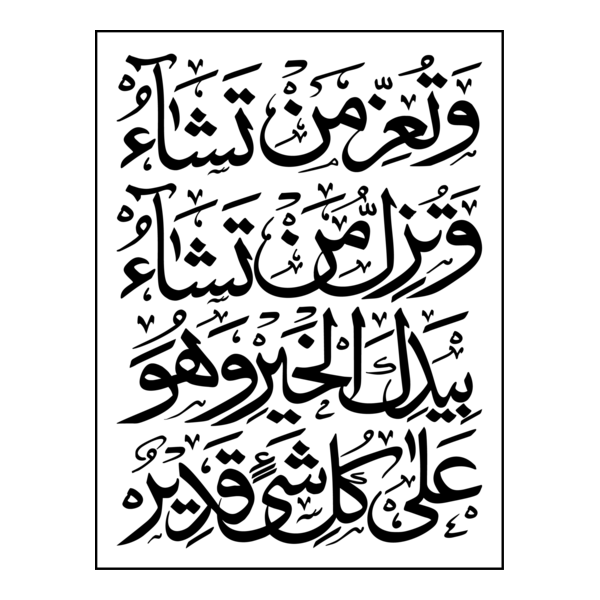 وَتُعِزِّ مَنْ تَشَآءُ
وَتُزِلُّ مَنْ تَشَآءُ
بِيَدِكَ الْخَيْرِ وَهُوَ
عَلىٰ كُلِ شَیءٍ قَدِيرُ